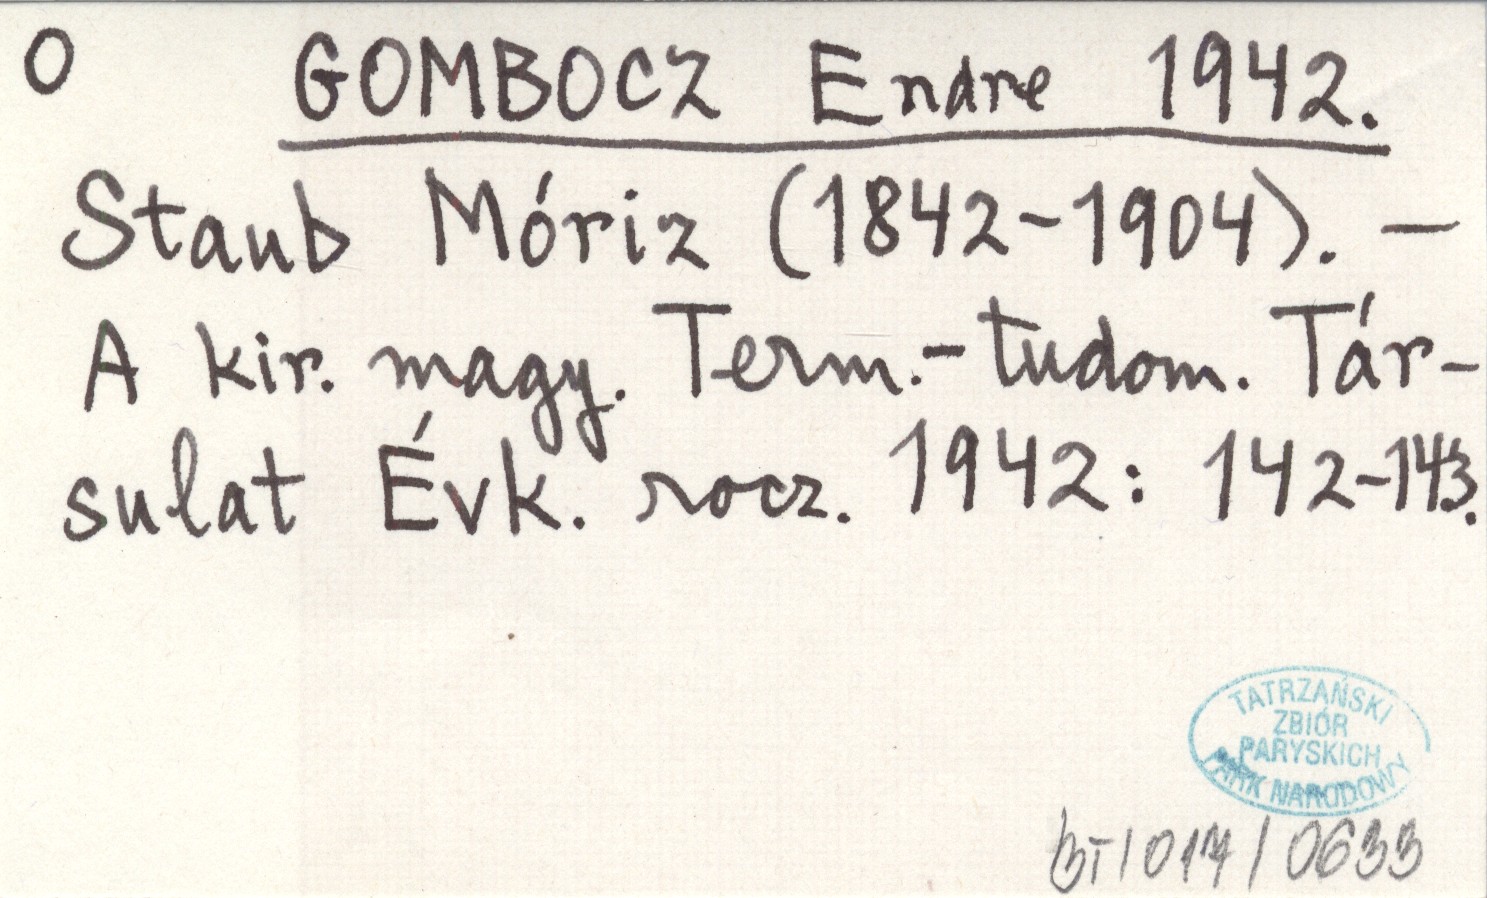 O GOMBOCZ Endre 1942.
Staub Móriz (1842-1904). —
A kir. magy. Term.-tudom. Tár-
sulat Évk. rocz. 1942: 142-143.
TATRZAŃSKI
ZBIÓR
PARYSKICH
PARK NARODOWY
BT/017/0633